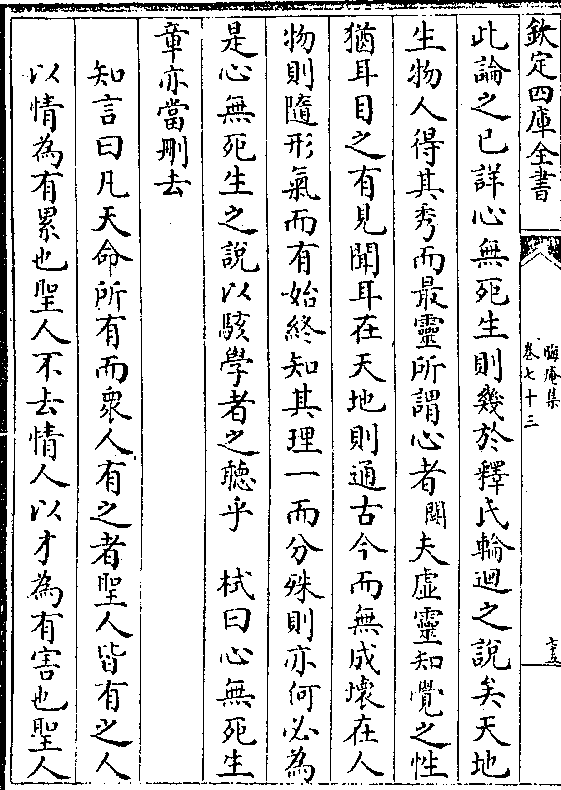 欽定四庫全書
晦庵集
卷七十三
七十五
此論之已詳心無死生則幾於釋氏輪迴之說矣天地
生物人得其秀而最靈所謂心者闕夫虛靈知覺之性
猶耳目之有見聞耳在天地則通古今而無成壞在人
物則隨形氣而有始終知其理一而分殊則亦何必為
是心無死生之說以駭學者之聽乎　栻曰心無死生
章亦當刪去
知言曰凡天命所有而衆人有之者聖人皆有之人
以情為有累也聖人不去情人以才為有害也聖人